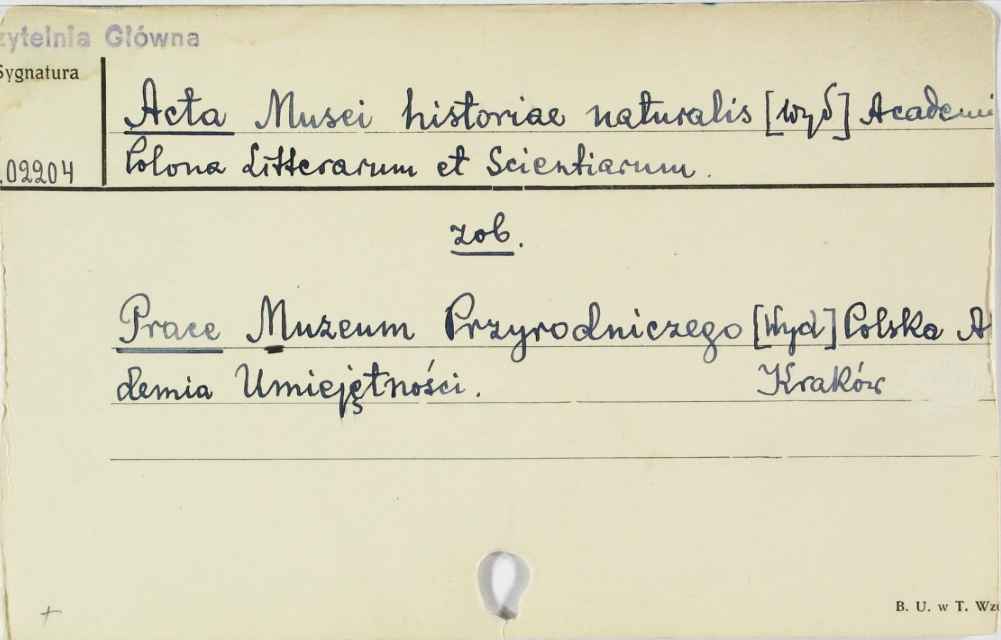 zytelnia Główna
Sygnatura
02204
Acta Musei historiae naturalis [wyd] Academi
Polona Litterarum et Scientiarum.
zob.
Prace Muzeum Przyrodniczego [Wyd] Polska A
demia Umiejętności. Kraków
+
B. U. w T. Wzó